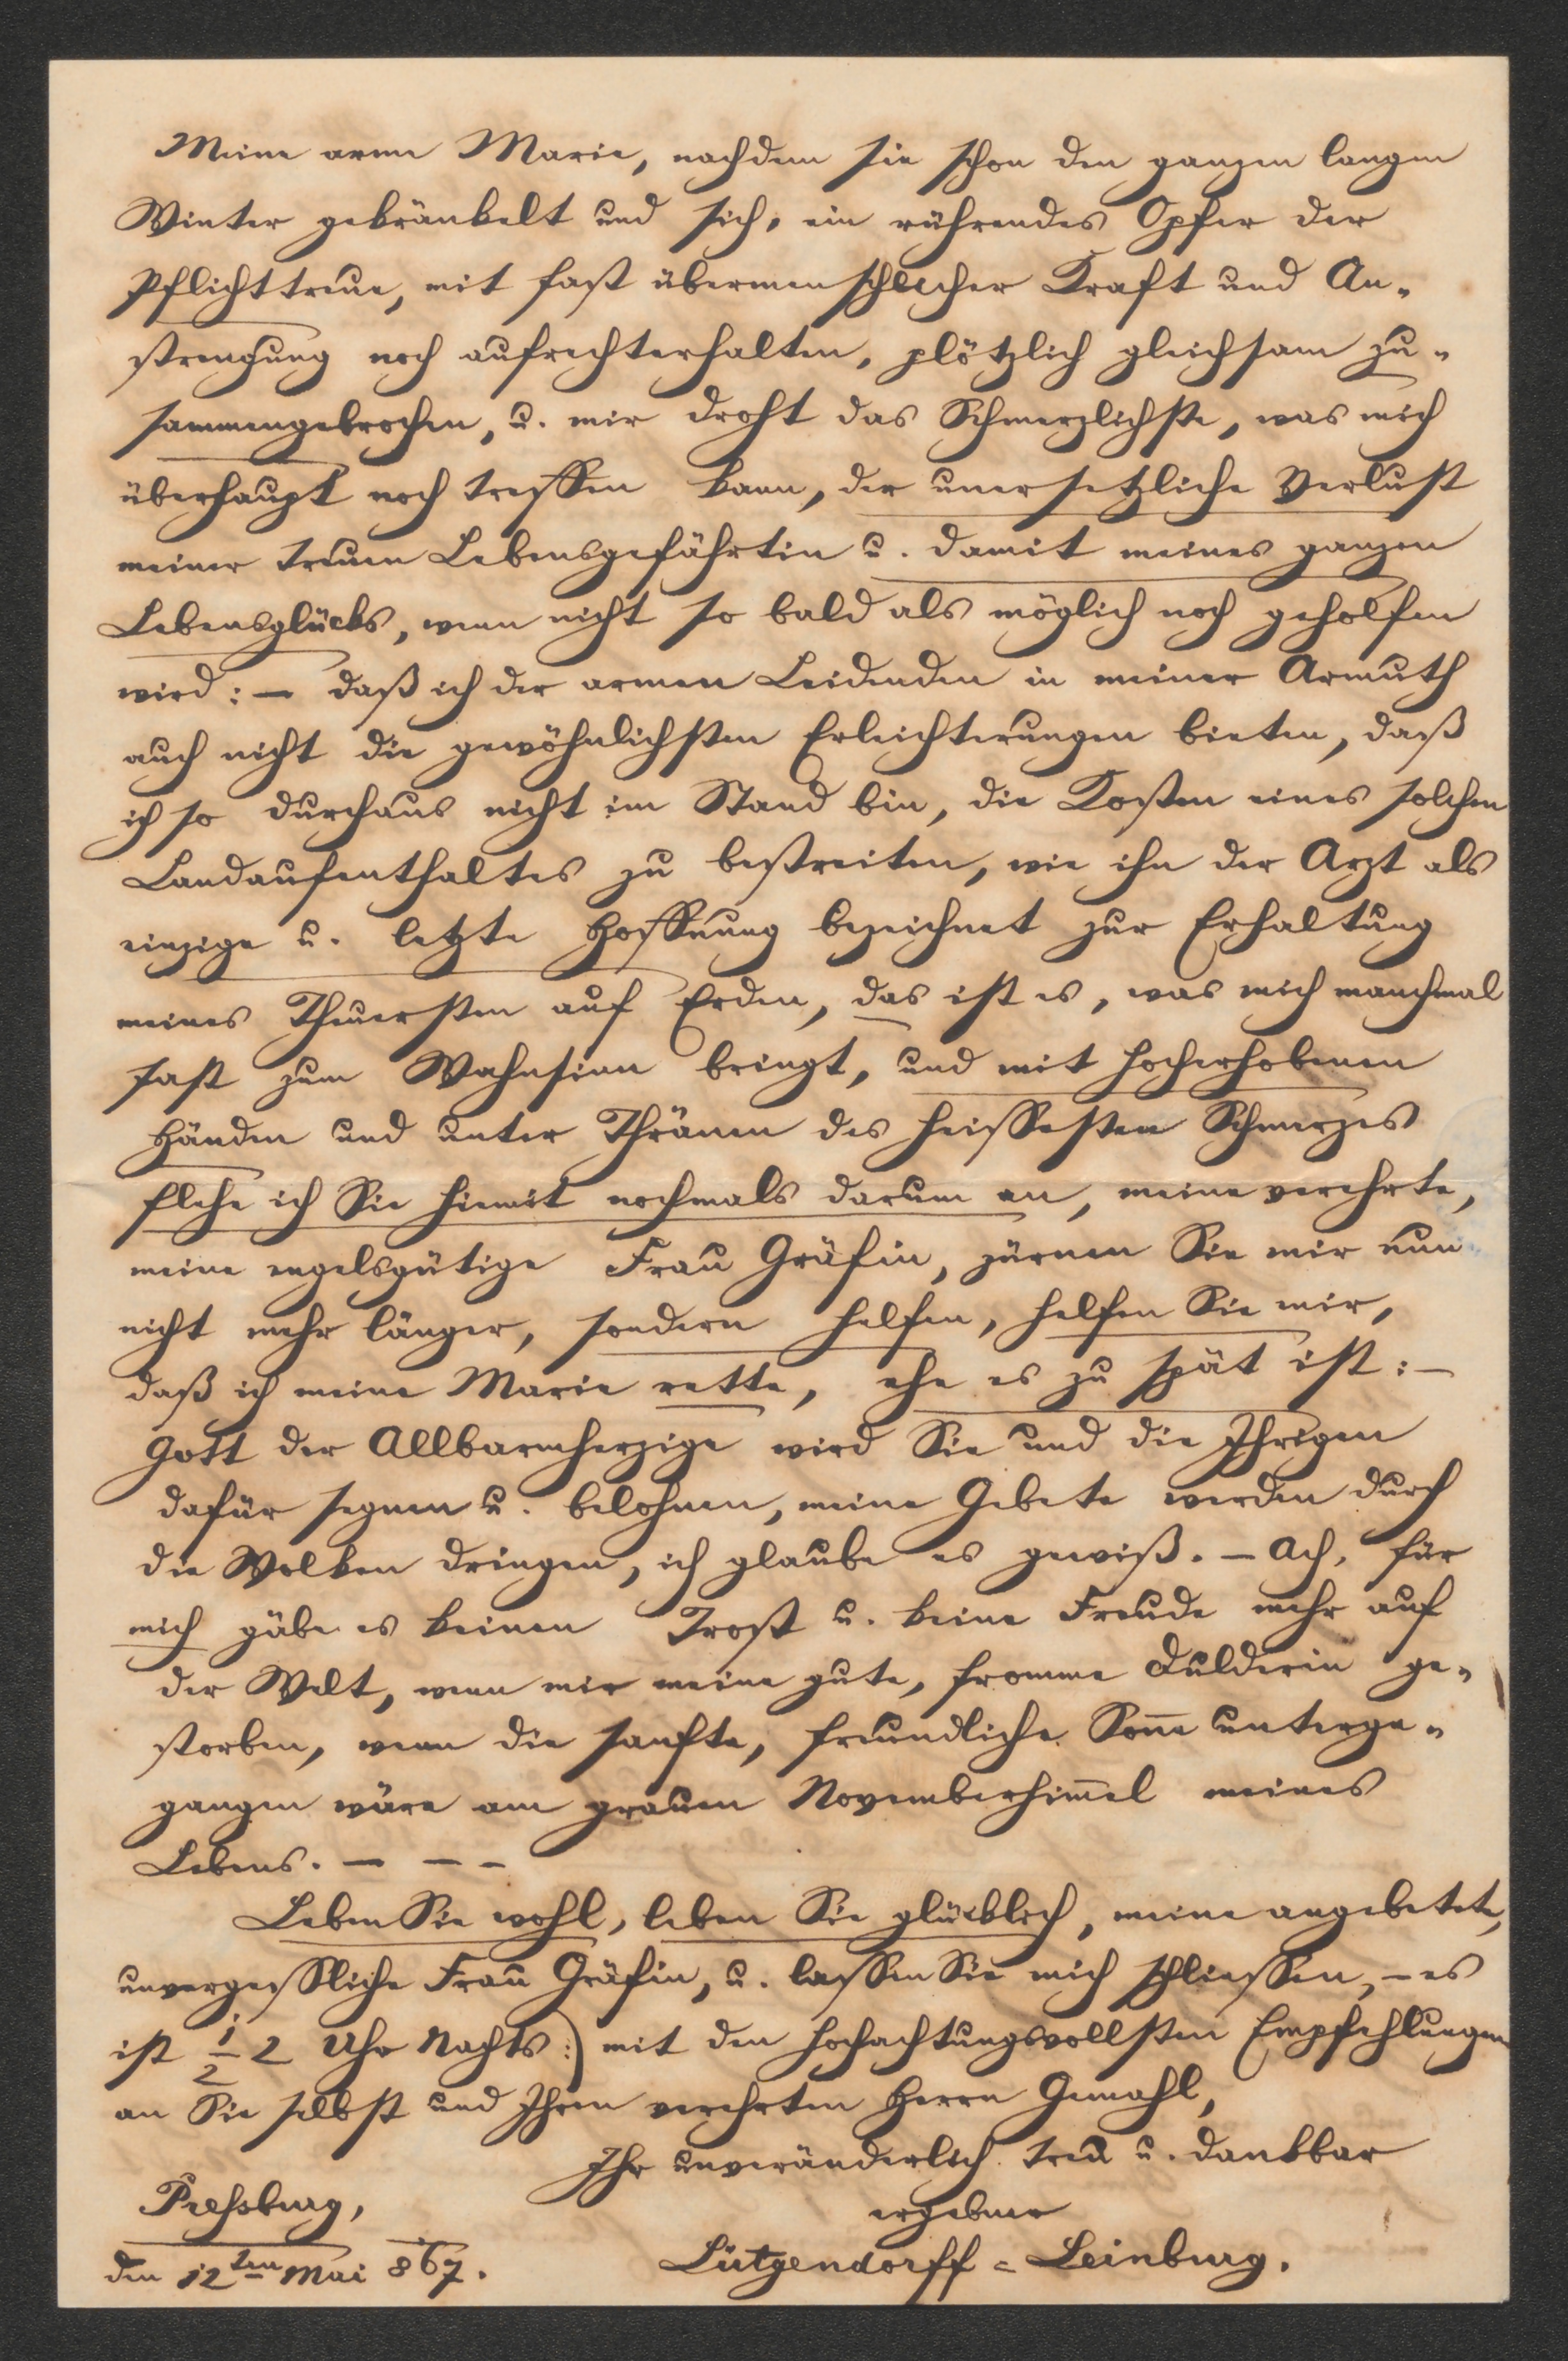 Meine arme Marie, nachdem sie schon den ganzen langen
Winter gekränkelt und sich, ein rührendes Opfer der
Pflichttreue, mit fast übermenschlicher Kraft und An-
strengung noch aufrechterhalten, plötzlich gleichsam zu-
sammengebrochen, u. mir droht das Schmerzlichste, was mich
überhaupt noch treffen kann, der unersetzliche Verlust
meiner treuen Lebensgefährtin u. damit meines ganzen
Lebensglücks, wenn nicht so bald als möglich noch geholfen
wird: – daß ich der armen Leidenden in meiner Armuth
auch nicht die gewöhnlichsten Erleichterungen bieten, daß
ich so durchaus nicht im Stand bin, die Kosten eines solchen
Landaufenthaltes zu bestreiten, wie ihn der Arzt als
einzige u. letzte Hoffnung bezeichnet zur Erhaltung
meines Theuersten auf Erden, das ist es, was mich manchmal
fast zum Wahnsinn bringt, und mit hocherhobenen
Händen und unter Thränen des heissesten Schmerzes
flehe ich Sie hiemit nochmals darum an, meine verehrte,
meine engelsgütige Frau Gräfin, zürnen Sie mir nun
nicht mehr länger, sondern helfen, helfen Sie mir,
daß ich meine Marie rette, ehe es zu spät ist: –
Gott der Allbarmherzige wird Sie und die Ihrigen
dafür segnen u. belohnen, meine Gebete werden durch
die Wolken dringen, ich glaube es gewiß. – Ach, für
mich gäbe es keinen Trost u. keine Freude mehr auf
der Welt, wenn mir meine gute, fromme Dulderin ge-
storben, wenn die sanfte, freundliche Son̅e unterge-
gangen wäre am grauen Novemberhim̅el meines
Lebens. – – –
Leben Sie wohl, leben Sie glücklich, meine angebetete,
unvergessliche Frau Gräfin, u. lassen Sie mich schliessen, – es
ist ½ 2 Uhr Nachts:) mit den hochachtungsvollsten Empfehlungen
an Sie selbst und Ihren verehrten Herrn Gemahl,
Ihr unveränderlich treu u. dankbar
ergebner
Pressburg,
den 12ten Mai 867.
Lütgendorff = Leinburg.